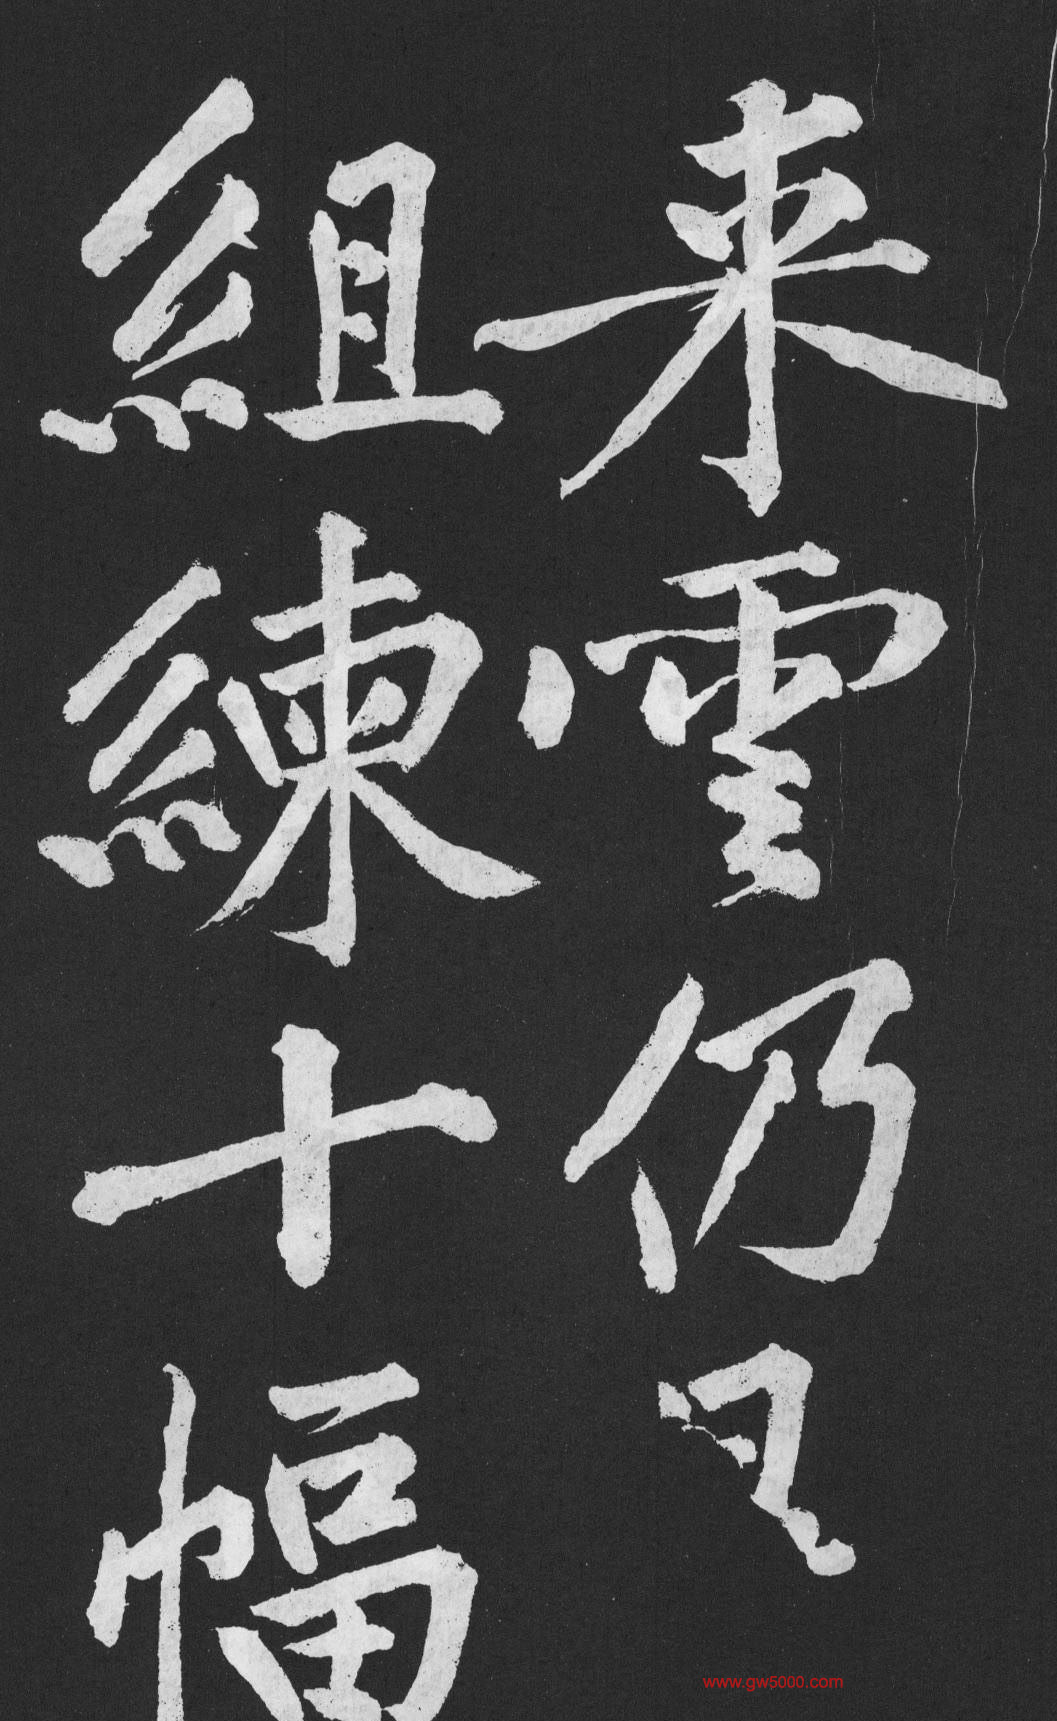 来雲仍
組練十幅
www.gw5000.com